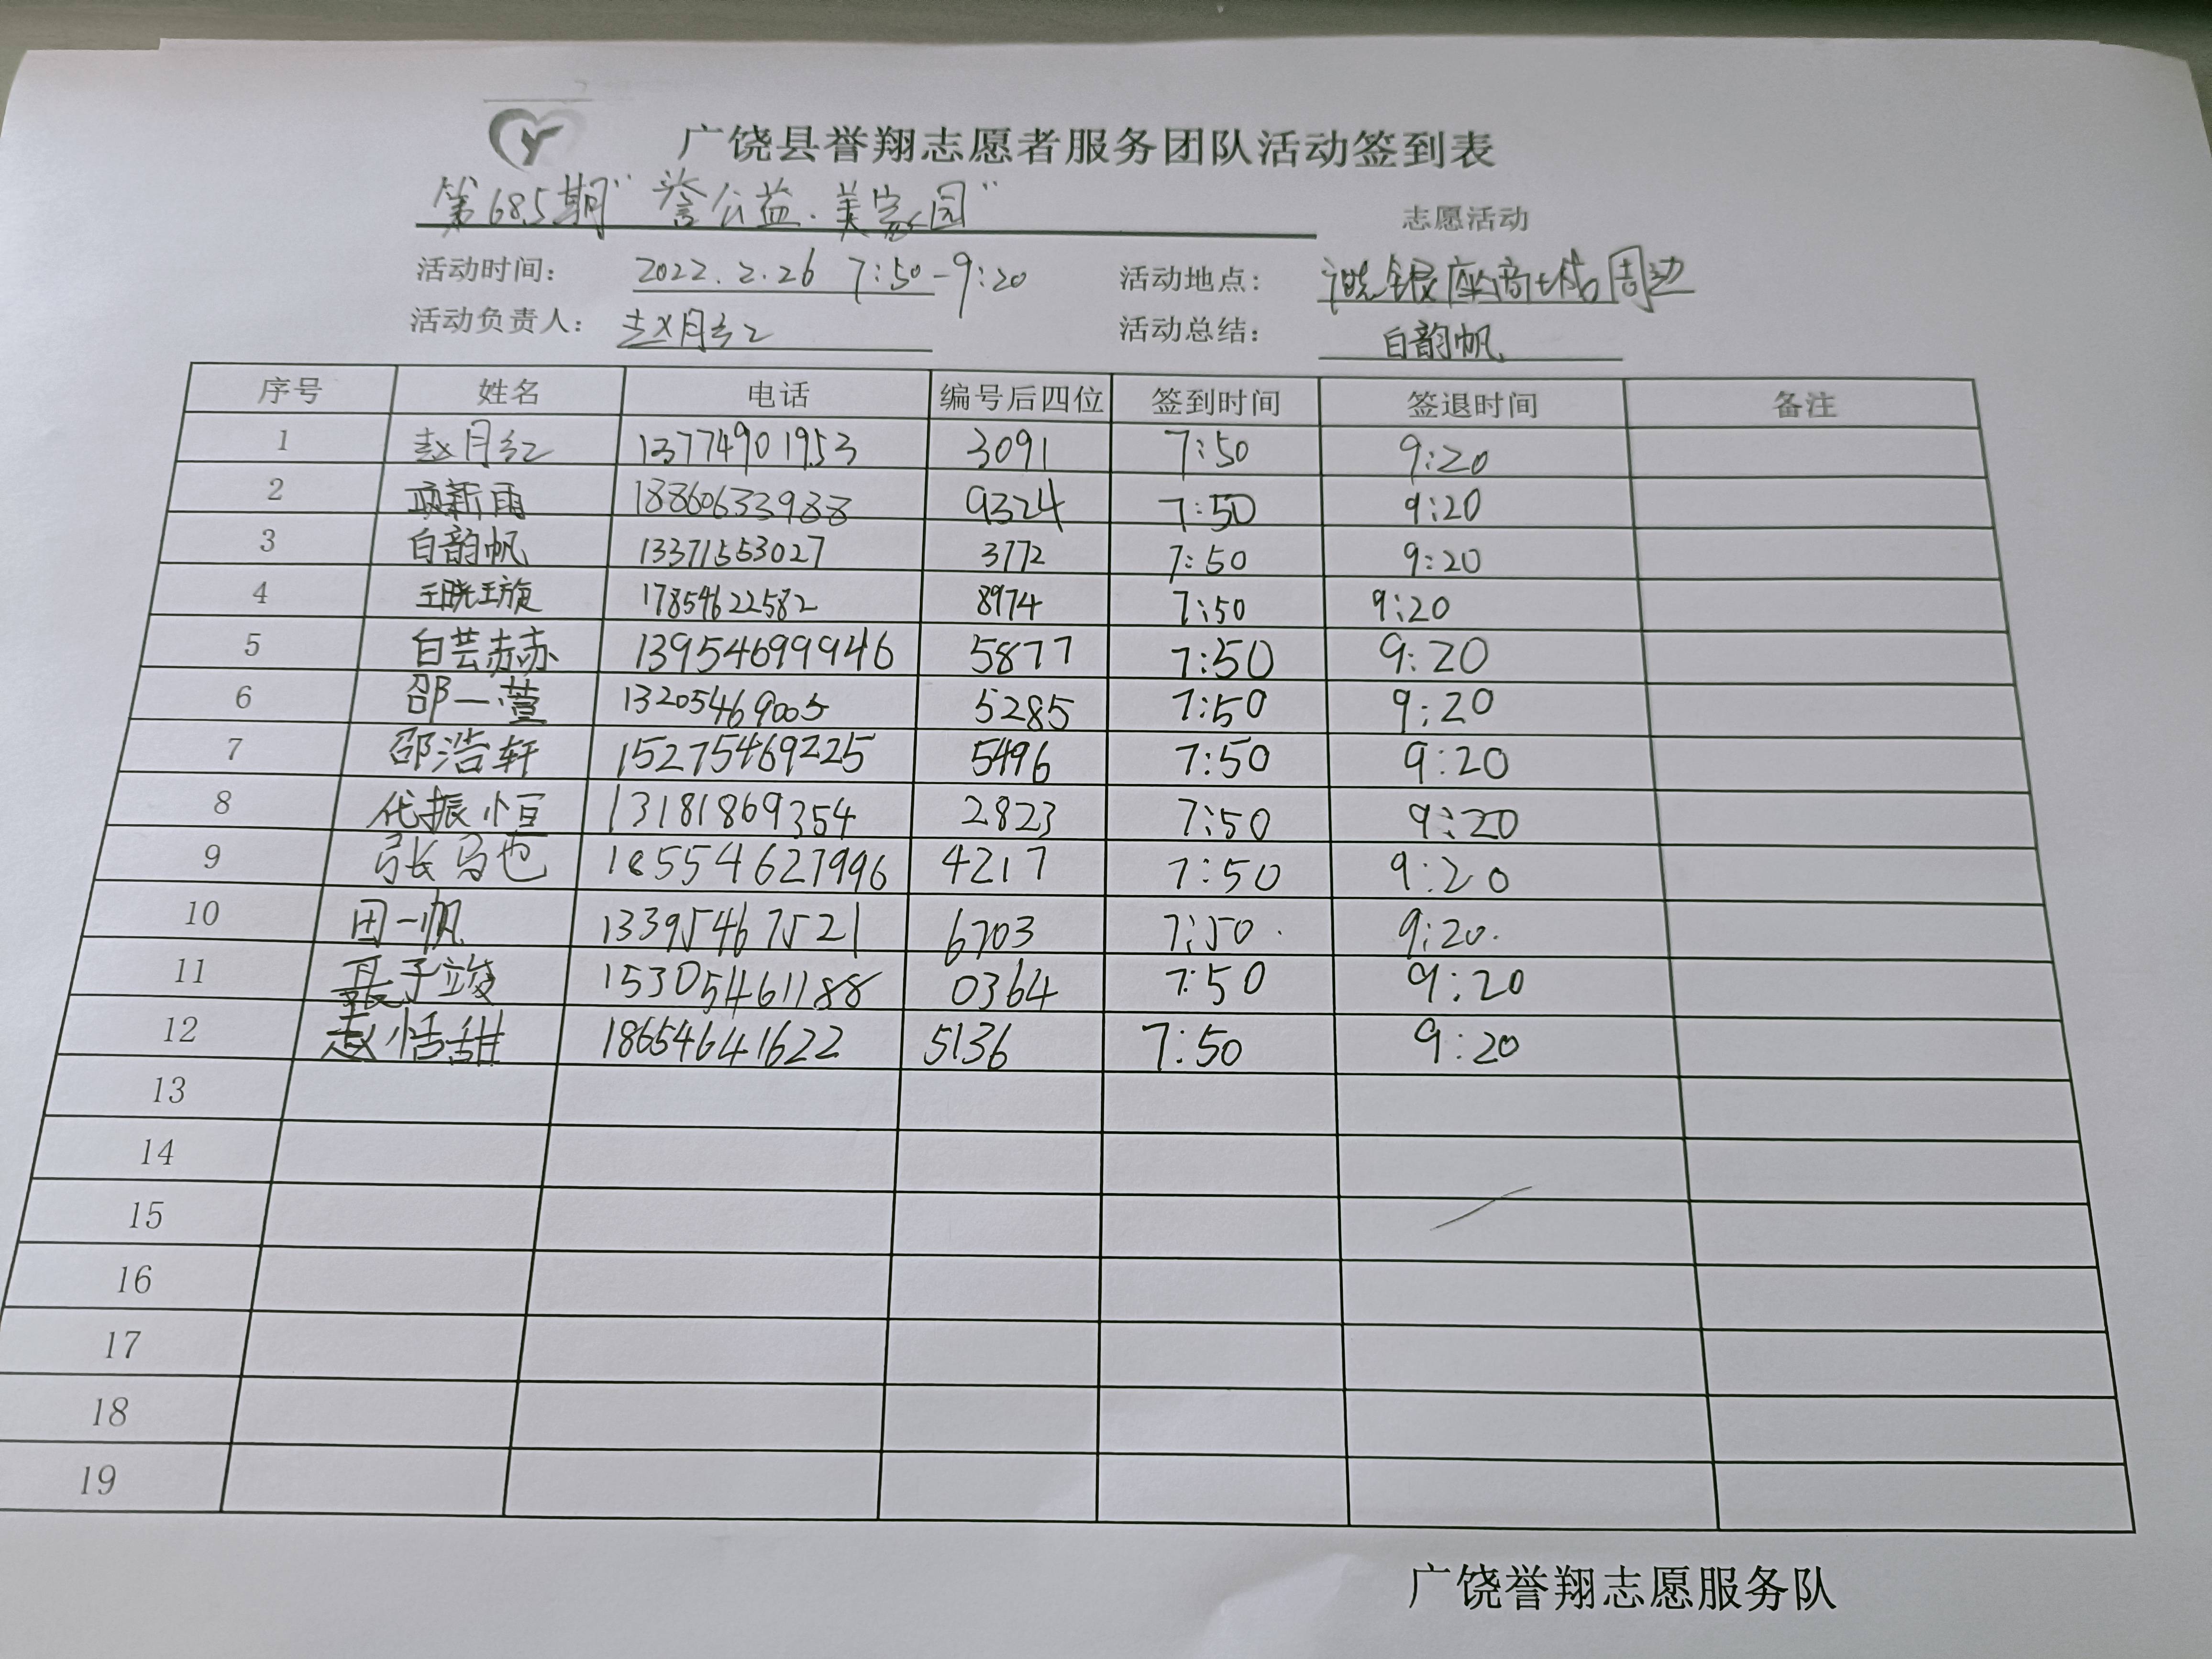 广饶县誉翔志愿者服务团队活动签到表
第685期"誉公益·美家园" 志愿活动
活动时间： 2022.2.26 7:50-9:20 活动地点： 银座商城周边
活动负责人： 赵月红 活动总结： 白韵帆
序号 姓名 电话 编号后四位 签到时间 签退时间 备注
1 赵月红 13774901953 3091 7:50 9:20
2 项新雨 18860633988 9324 7:50 9:20
3 白韵帆 13371553027 3772 7:50 9:20
4 王晓璇 17854622582 8974 7:50 9:20
5 白芸赫 13954699946 5877 7:50 9:20
6 邵一萱 13205469005 5285 7:50 9:20
7 邵浩轩 15275469225 5496 7:50 9:20
8 代振恒 13181869354 2823 7:50 9:20
9 张驰 18554627996 4217 7:50 9:20
10 田一帆 13395467521 6703 7:50 9:20
11 聂子竣 15305461188 0364 7:50 9:20
12 赵恬甜 18654641622 5136 7:50 9:20
13
14
15
16
17
18
19
广饶誉翔志愿服务队